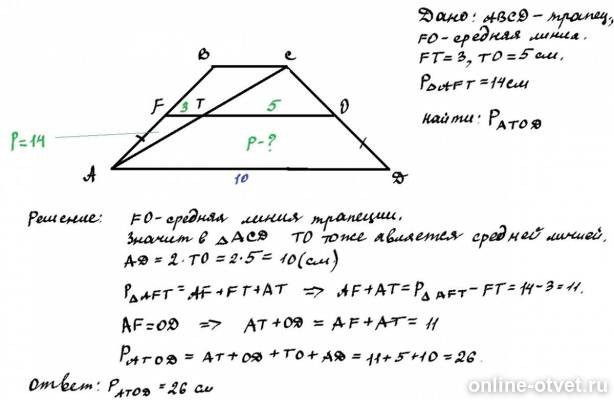 Дано: ABCD – трапец,
FO – средняя линия.
FT = 3, TO = 5 см.
P△AFT = 14 см
найти: PATOD
B
C
F
3
T
5
O
P = 14
P - ?
A
10
D
Решение: FO – средняя линия трапеции.
Значит в △ACD TO тоже является средней линией.
AD = 2 · TO = 2 · 5 = 10 (см)
P△AFT = AF + FT + AT ⇒ AF + AT = P△AFT – FT = 14 – 3 = 11.
AF = OD ⇒ AT + OD = AF + AT = 11
PATOD = AT + OD + TO + AD = 11 + 5 + 10 = 26.
Ответ: PATOD = 26 см
online-otvet.ru